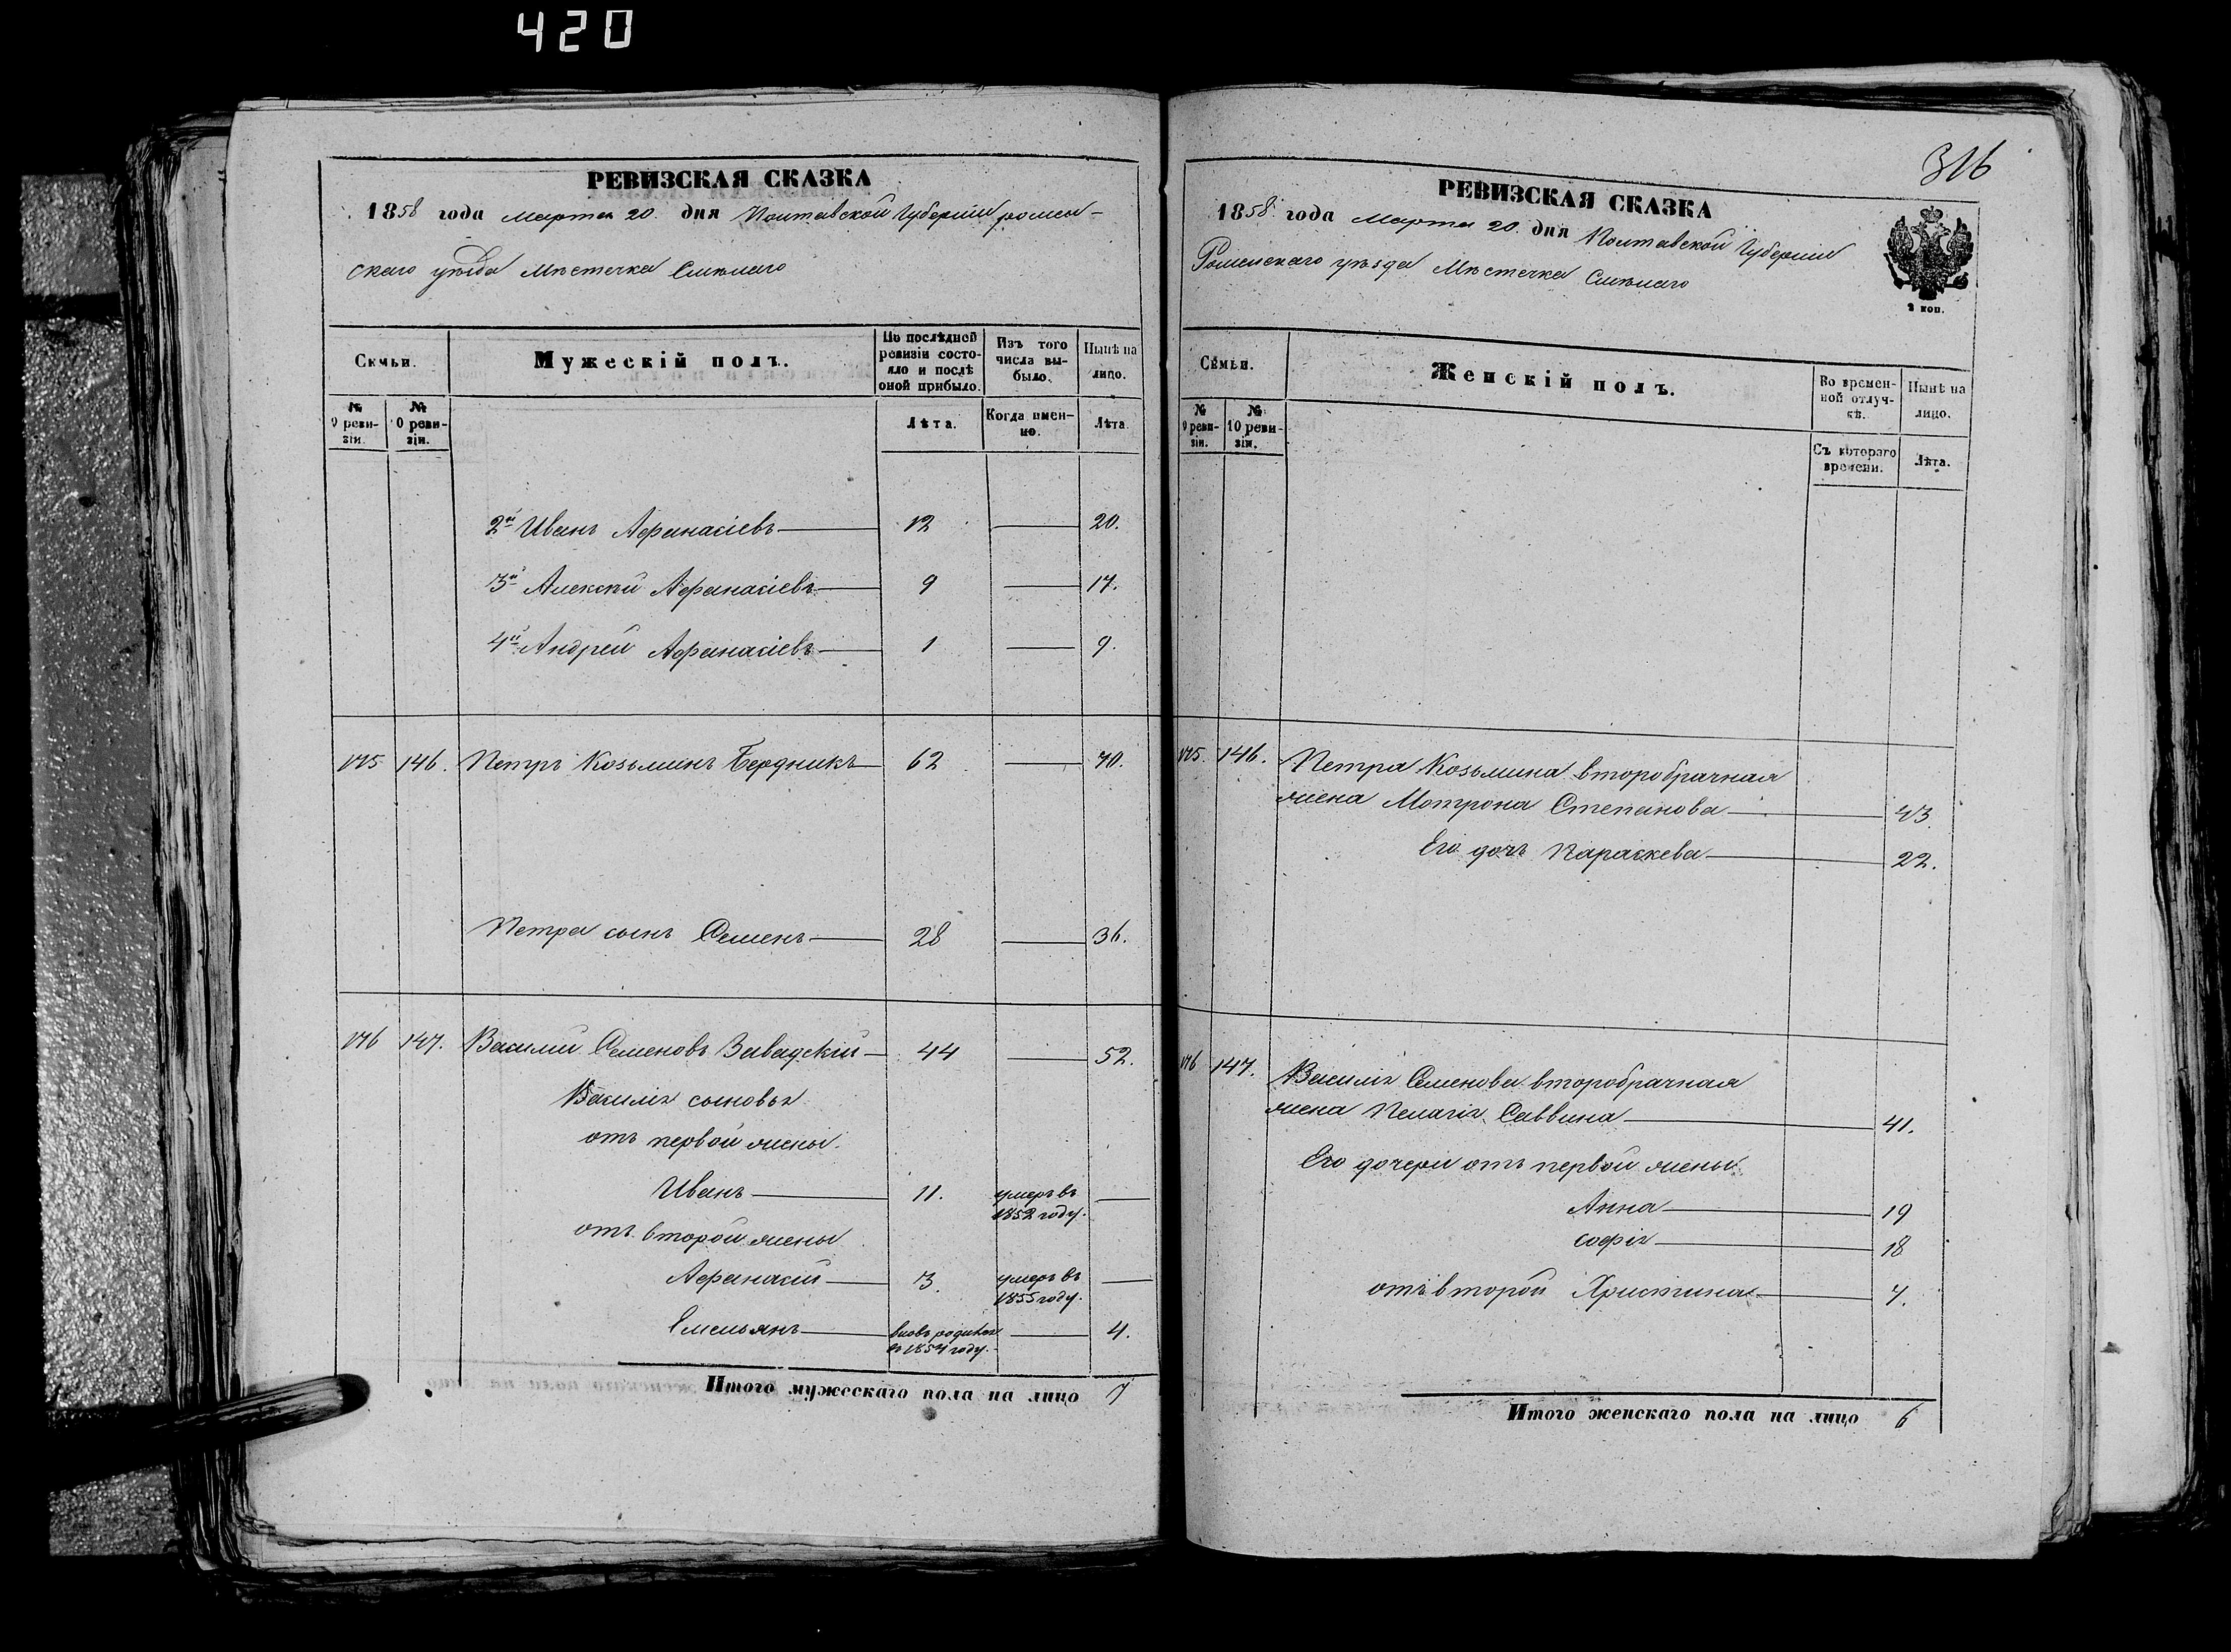 420
РЕВИЗСКАЯ СКАЗКА
1858 года Марта 20. дня Полтавской Губерніи ромен-
скаго уѣзда Мѣстечка Смѣлаго
Семьи.
Мужескій полъ.
По послѣдней ревизіи состояло и послѣ оной прибыло.
Изъ того числа вы-было.
Нынѣ на лицо.
№ 9 реви-зіи.
№ 10 реви-зіи.
Лѣта.
Когда имен-но.
Лѣта.
2й Иванъ Афанасіевъ 12 20.
3й Алексѣй Афанасіевъ 9 17.
4й Андрей Афанасіевъ 1 9.
175 146. Петръ Козьминъ Бердникъ 62 70.
Петра сынъ Семенъ 28 36.
176 147. Василій Семеновъ Завадскій 44 52.
Василія сыновья
отъ первой жены
Иванъ 11. умеръ въ 1852 году.
отъ второй жены
Афанасій 3. умеръ въ 1855 году.
Емельянъ вновь родился въ 1854 году. 4.
Итого мужескаго пола на лицо 7
316
РЕВИЗСКАЯ СКАЗКА
1858 года Марта 20. дня Полтавской Губерніи
Роменскаго уѣзда Мѣстечка Смѣлаго
2 коп.
Семьи.
Женскій полъ.
Во времен-ной отлуч-кѣ.
Нынѣ на лицо.
№ 9 реви-зіи.
№ 10 реви-зіи.
Съ котораго времени.
Лѣта.
175. 146. Петра Козьмина второбрачная
жена Мотрона Степанова 43.
Его дочь Параскева 22.
176 147. Василія Семенова второбрачная
жена Пелагія Саввина 41.
Его дочери отъ первой жены
Анна 19
Софія 18
отъ второй Христина 7.
Итого женскаго пола на лицо 6